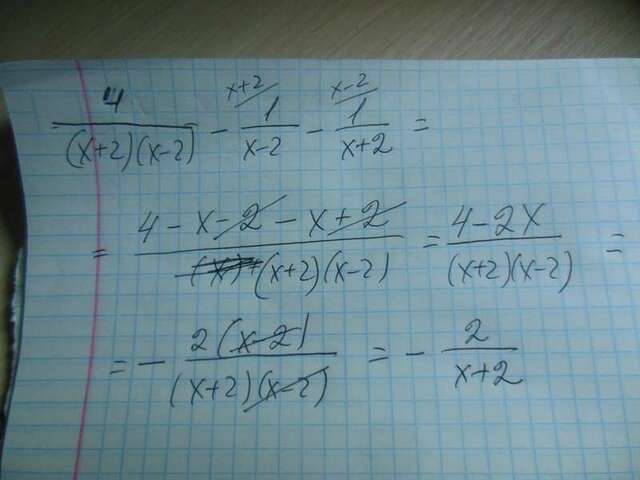 x+2 x-2
4/((x+2)(x-2)) - 1/(x-2) - 1/(x+2) =
= (4 - x - 2 - x + 2)/((x+2)(x-2)) = (4-2x)/((x+2)(x-2)) =
= - 2(x-2)/((x+2)(x-2)) = - 2/(x+2)